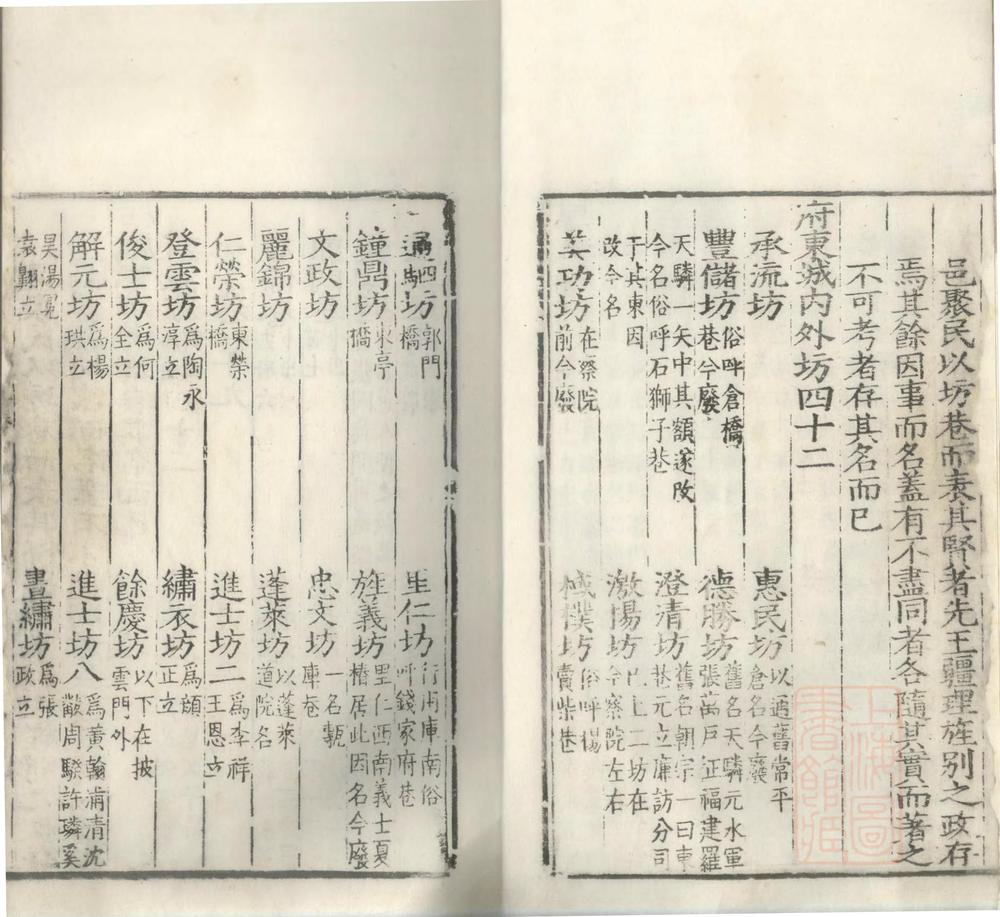 邑聚民以坊巷而表其賢者先王疆理旌别之政存
焉其餘因事而名蓋有不盡同者各隨其實而著之
不可考者存其名而已
府東城內外坊四十二
承流坊
惠民坊
以通舊常平
倉名今廢
豐儲坊
俗呼倉橋
巷今廢
德勝坊
舊名天驎元水軍
張萬戶征福建羅
天驎一矢中其額遂改
今名俗呼石獅子巷
澄清坊
舊名朝宗一曰東
巷元立廉訪分司
于其東因
改今名
激揚坊
已上二坊在
今察院左右
美功坊
在察院
前今廢
棫樸坊
俗呼楊
賣柴巷
通駟坊
郭門
橋
里仁坊
行用庫南俗
呼錢家府巷
鐘鼎坊
米亭
橋
旌義坊
里仁西南義士夏
椿居此因名今廢
文政坊
忠文坊
一名瓶
庫巷
麗錦坊
蓬萊坊
以蓬萊
道院名
仁榮坊
東榮
橋
進士坊二
爲李祥
王恩立
登雲坊
爲陶永
淳立
繡衣坊
爲頤
正立
俊士坊
爲何
全立
餘慶坊
以下在披
雲門外
解元坊
爲楊
珙立
進士坊八
爲黄翰浦清沈
敝周騤許璘奚
昊湯冕
袁翺立
晝繡坊
爲張
政立